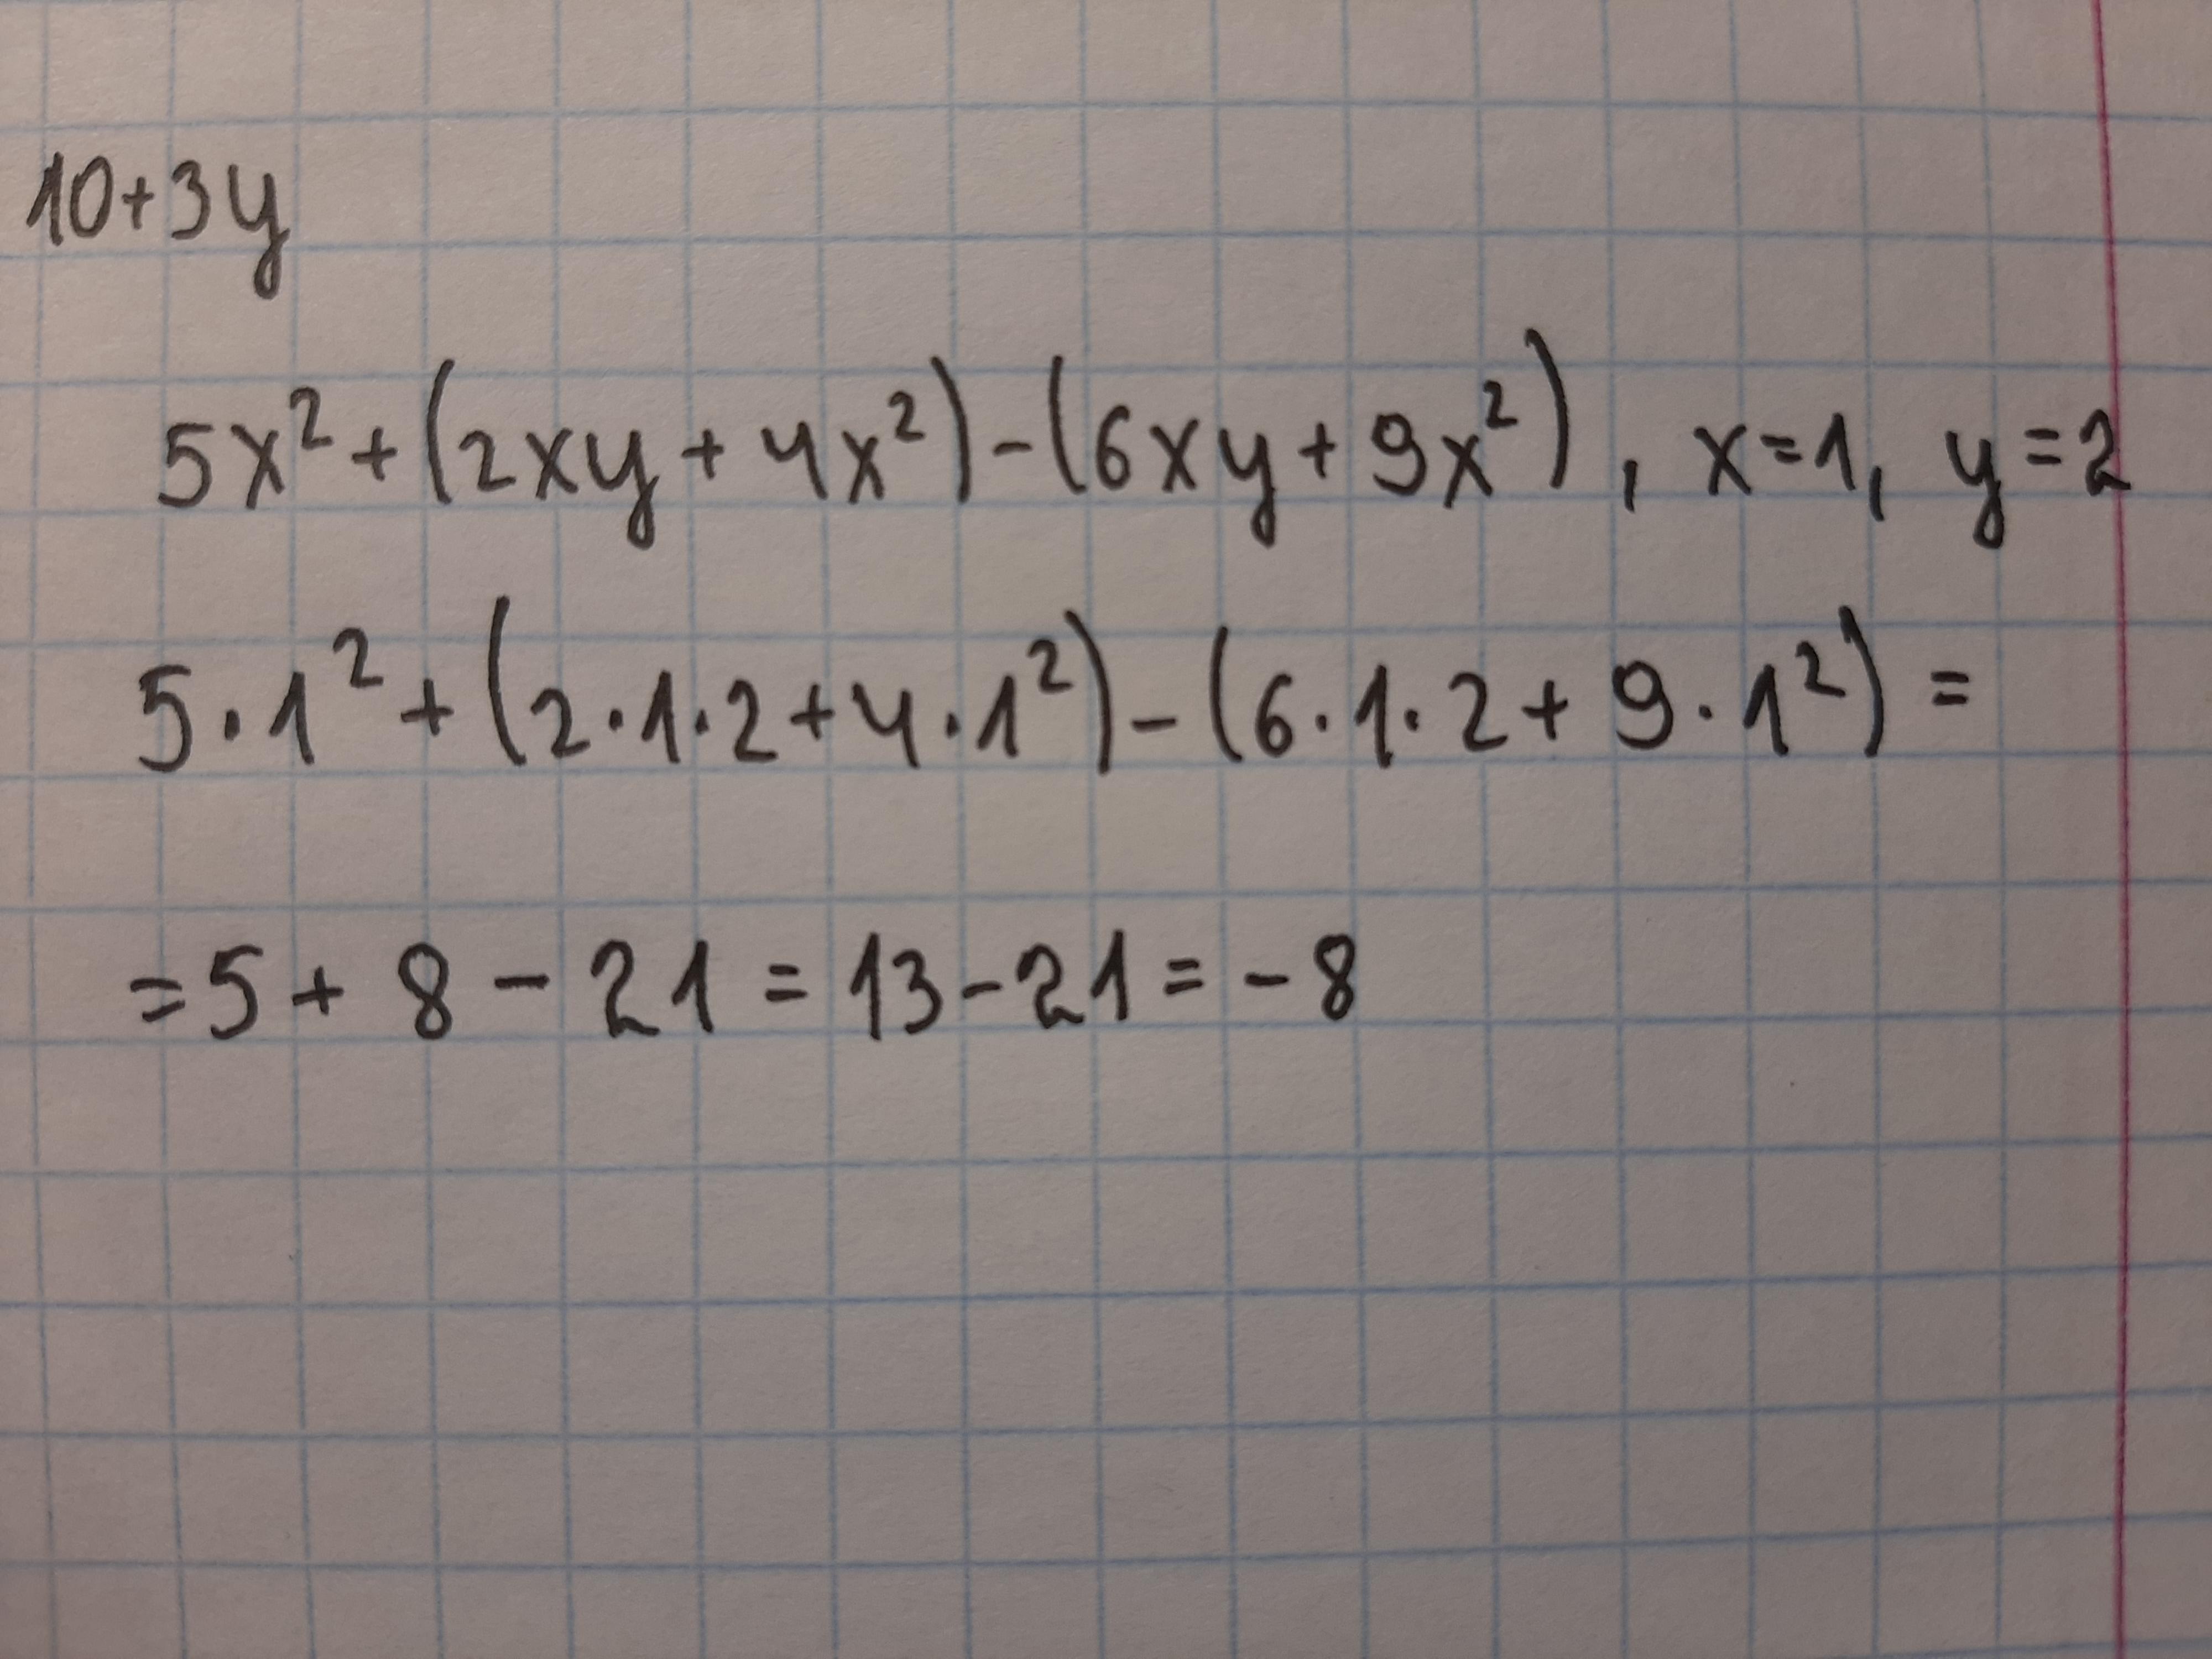 10+3y
5x²+(2xy+4x²)-(6xy+9x²), x=1, y=2
5·1²+(2·1·2+4·1²)-(6·1·2+9·1²)=
=5+8-21=13-21=-8